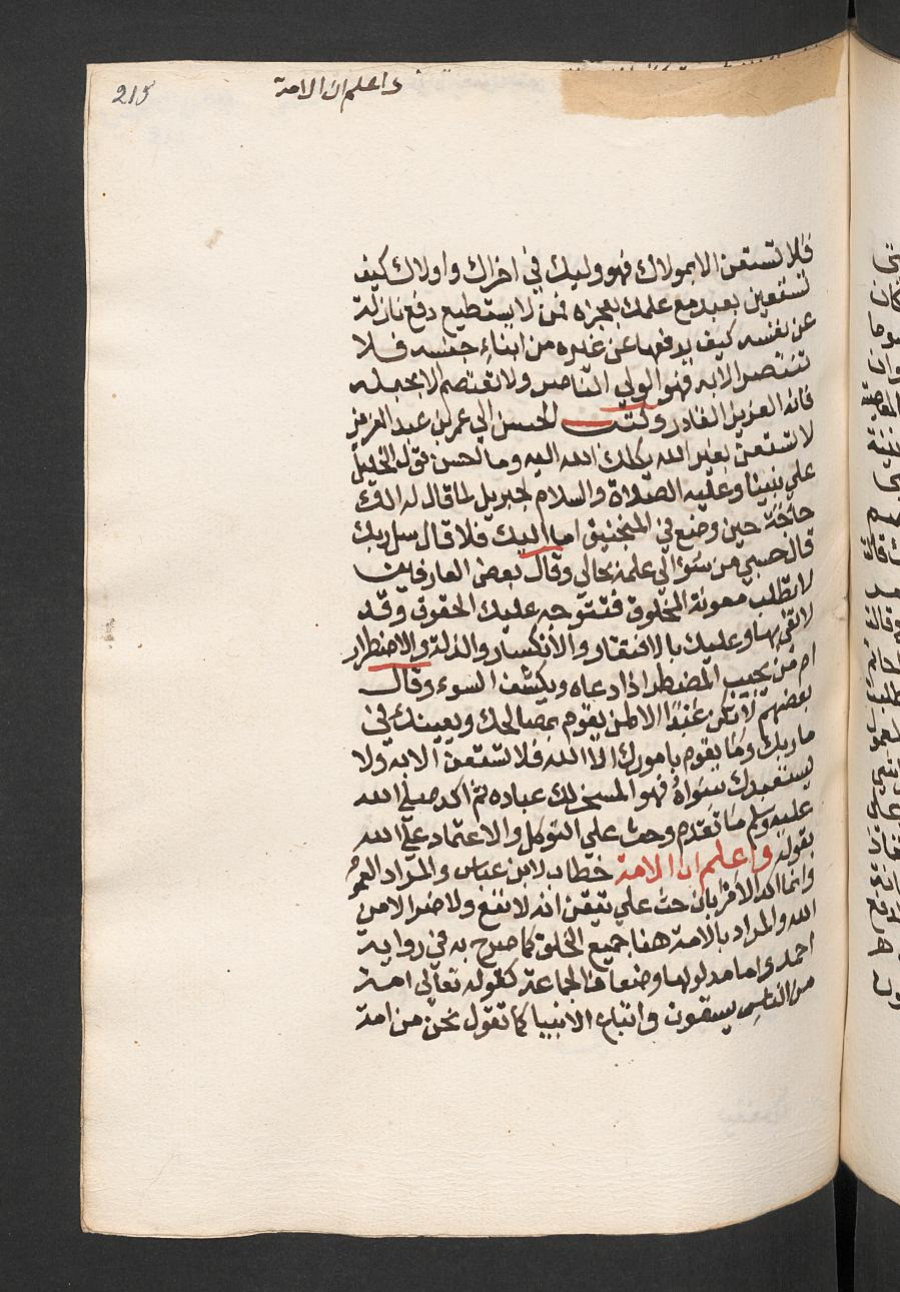 215
واعلم ان الامة
فلا تستعن الا بمولاك فهو وليك في اخراك واولاك كيف
تستعين بعبد مع علمك بعجزه فمن لا يستطيع دفع نازلة
عن نفسه كيف يدفعها عن غيره من ابناء جنسه فلا
تنتصر الا به فهو الولي الناصر ولا تعتصم الا بحبله
فانه العزيز القادر وكتب الحسن الي عمر بن عبد العزيز
لا تستعن بغير الله يكلك الله اليه وما احسن قول الخليل
علي نبينا وعليه الصلاة والسلام لجبريل لما قال له الك
حاجة حين وضع في المنجنيق اما اليك فلا قال سل ربك
قال حسبي من سؤالي علمه بحالي وقال بعض العارفين
لا تطلب معونة المخلوق فتتوجه عليك الحقوق وقد
لا تفي بها وعليك بالافتقار والانكسار والذلة والاضطرار
ام من يجيب المضطر اذا دعاه ويكشف السوء وقال
بعضهم لا تكن عبدا الا لمن يقوم بمصالحك ويعينك في
ماربك وما يقوم بامورك الا الله فلا تستعن الا به ولا
يستعبدك سواه فهو المسخر لك عباده ثم اكد صلي الله
عليه وسلم ما تقدم وحث علي التوكل والاعتماد علي الله
بقوله واعلم ان الامة خطاب لابن عباس والمراد العموم
وانما اكد الامر بان حث علي تيقن انه لا نفع ولا ضر الا من
الله والمراد بالامة هنا جميع الخلق كما صرح به في رواية
احمد واما مدلولها وضعا فالجماعة كقوله تعالي امة
من الناس يسقون واتباع الانبيا كما تقول نحن من امة